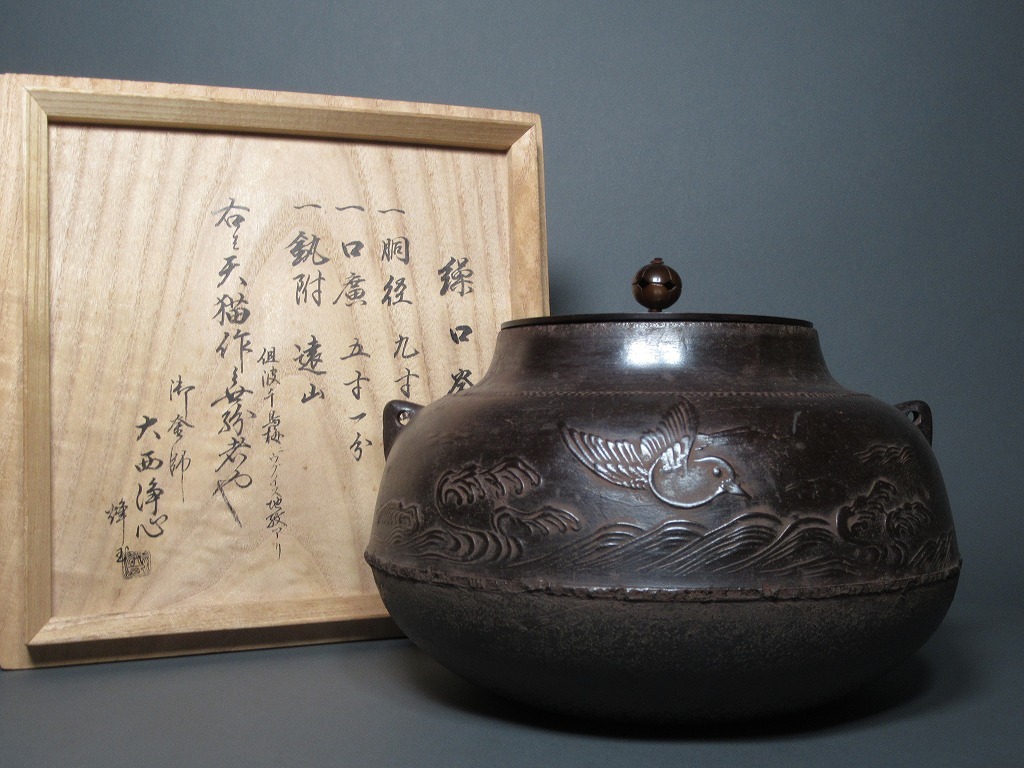 繰口釜
一胴径 九寸
一口廣 五寸一分
一釻附 遠山
但波千鳥梅ウグイス地紋アリ
右ハ天猫作ニ無紛者也
御釜師
大西浄心